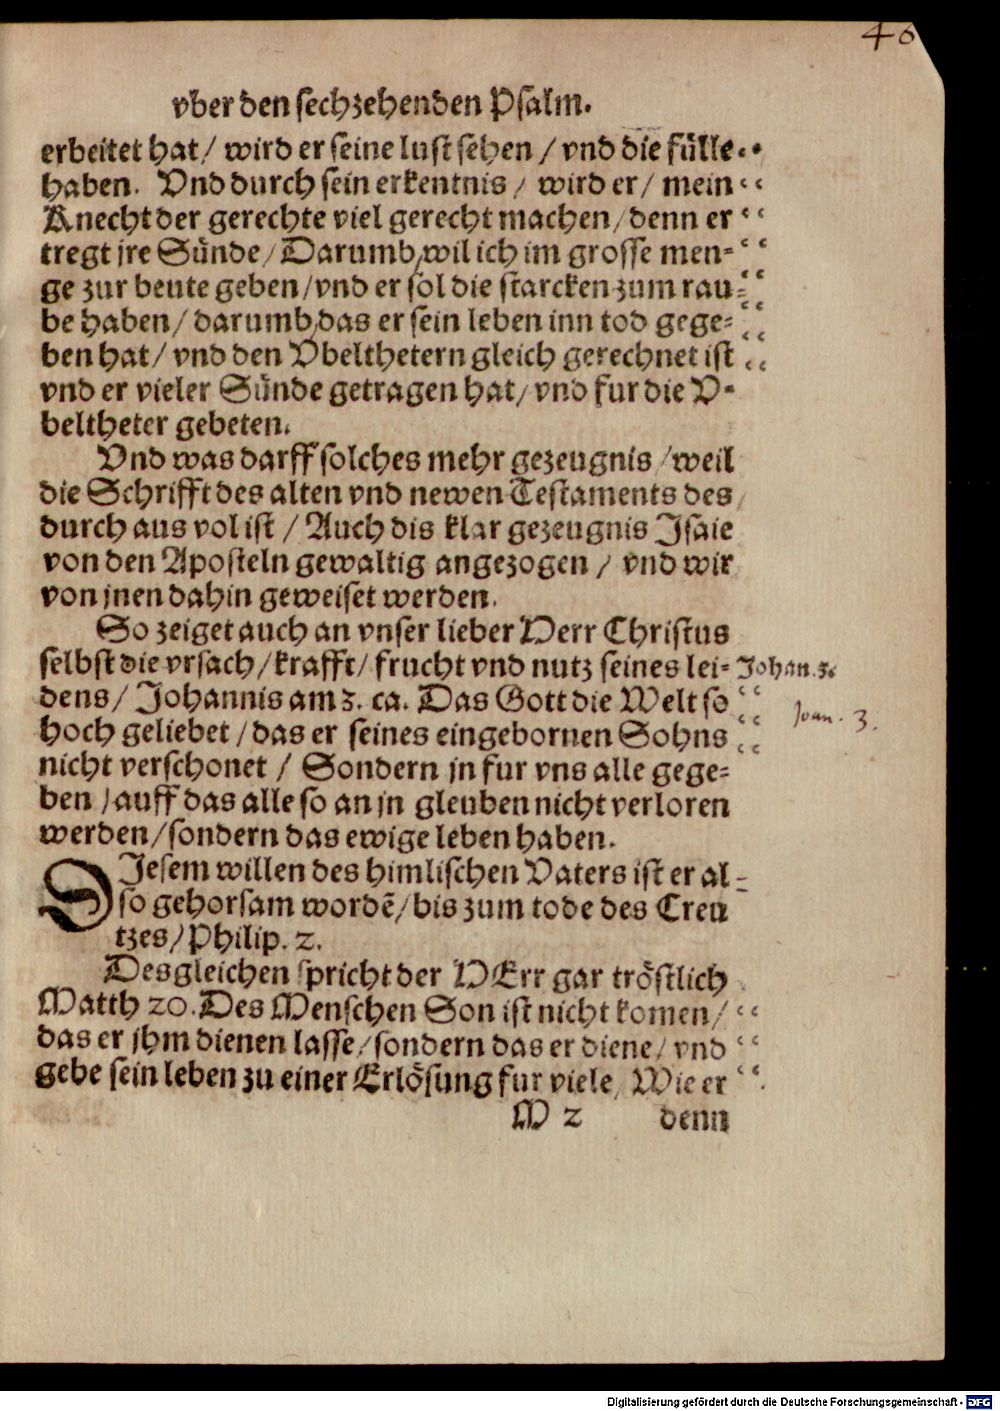 46
vber den sechzehenden Psalm.
erbeitet hat/ wird er seine lust sehen / vnd die fülle
haben. Vnd durch sein erkentnis / wird er/ mein
Knecht der gerechte viel gerecht machen/ denn er
tregt jre Sünde/ Darumb wil ich im grosse men-
ge zur beute geben/ vnd er sol die starcken zum rau-
be haben/ darumb das er sein leben inn tod gege-
ben hat/ vnd den Vbelthetern gleich gerechnet ist
vnd er vieler Sünde getragen hat/ vnd fur die V-
beltheter gebeten.
Vnd was darff solches mehr gezeugnis / weil
die Schrifft des alten vnd newen Testaments des
durch aus vol ist / Auch dis klar gezeugnis Isaie
von den Aposteln gewaltig angezogen / vnd wir
von jnen dahin geweiset werden.
So zeiget auch an vnser lieber Herr Christus
selbst die vrsach/ krafft/ frucht vnd nutz seines lei- Johan. 3.
dens/ Johannis am 3. ca. Das Gott die Welt so
Joan. 3.
hoch geliebet / das er seines eingebornen Sohns
nicht verschonet / Sondern jn fur vns alle gege-
ben / auff das alle so an jn gleuben nicht verloren
werden/ sondern das ewige leben haben.
DIesem willen des himlischen Vaters ist er al-
so gehorsam wordē/ bis zum tode des Creu
tzes/ Philip. 2.
Desgleichen spricht der HErr gar tröstlich
Matth 20. Des Menschen Son ist nicht komen/
das er jhm dienen lasse/ sondern das er diene/ vnd
gebe sein leben zu einer Erlösung fur viele/ Wie er
M 2 denn
Digitalisierung gefördert durch die Deutsche Forschungsgemeinschaft - DFG